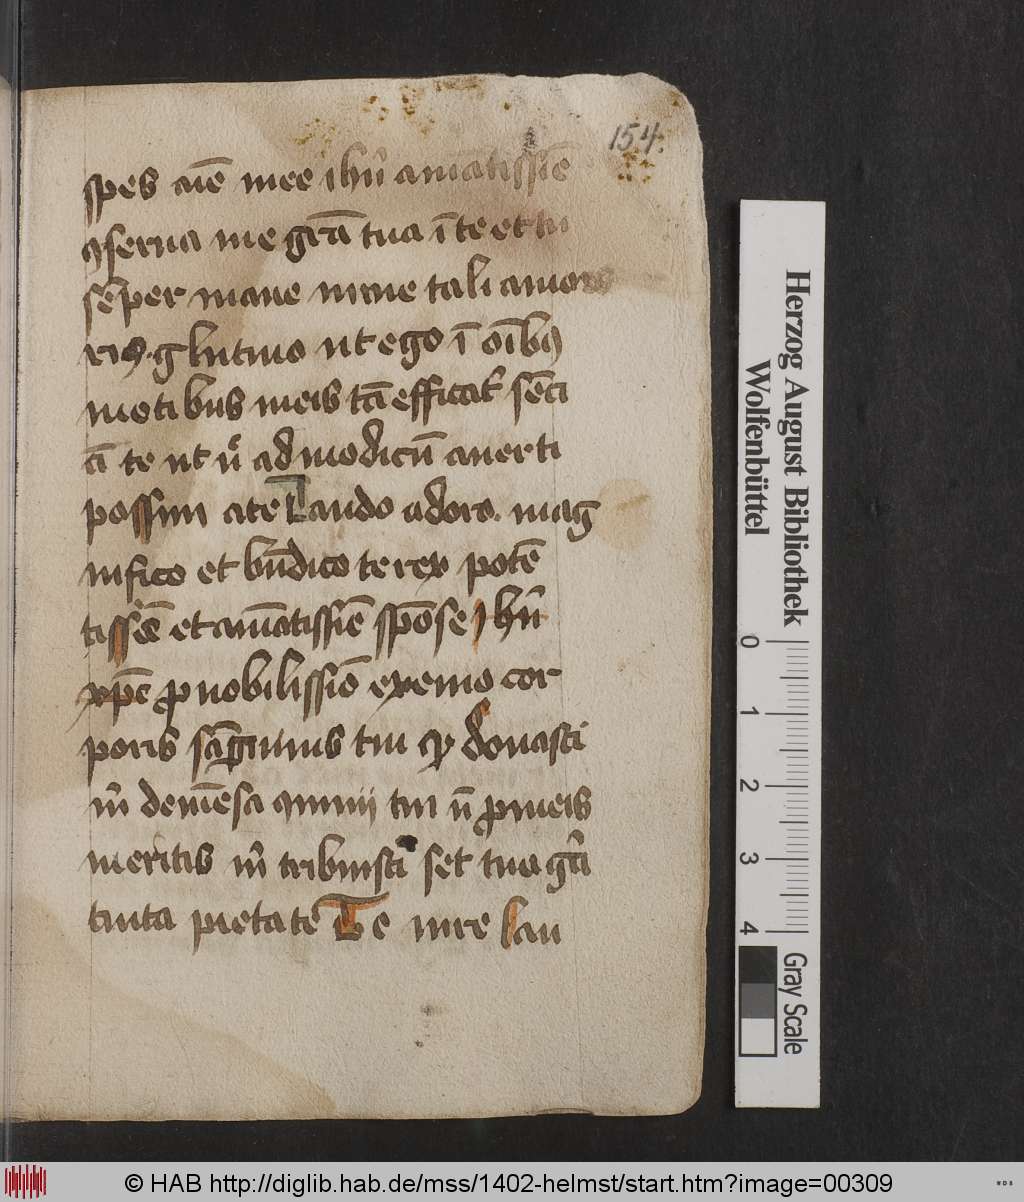 154.
spes aīe mee ihū amatissīē
ꝯserua me gr̄a tua ī te et tu
sēper mane mane tali amoris
eiꝰ glutino ut ego ī oībꝫ
motibus meis tā efficat͛ sēti
ā te ut nͦ ad modicū auerti
possim a te Laudo adoro. mag
nifico et bn̄dico te rex potē
tissīē et amātissīē spōse Ihū
xp̄e ꝓ nobilissīo exenio cor
poris sāgwinis tui qꝫ donasti
m̄ de mēsa tui nō ꝓ meis
meritis m̄ tribuisti set tua g̃
tuita pietate Te iure lau
Herzog August Bibliothek
Wolfenbüttel
0 1 2 3 4
Gray Scale
© HAB http://diglib.hab.de/mss/1402-helmst/start.htm?image=00309